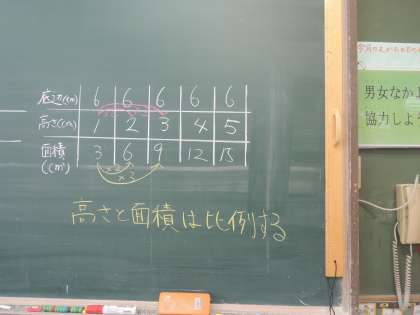 底辺(cm) 6 6 6 6 6
高さ(cm) 1 2 3 4 5
面積 3 6 9 12 15
(cm²)
×2
×3
高さと面積は比例する
男女なかよ
協力しよう